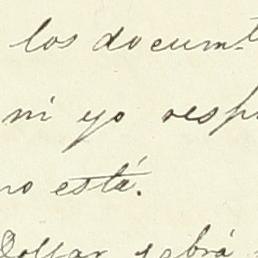 los documt
ni yo resp
no está.
Dollar sobrá